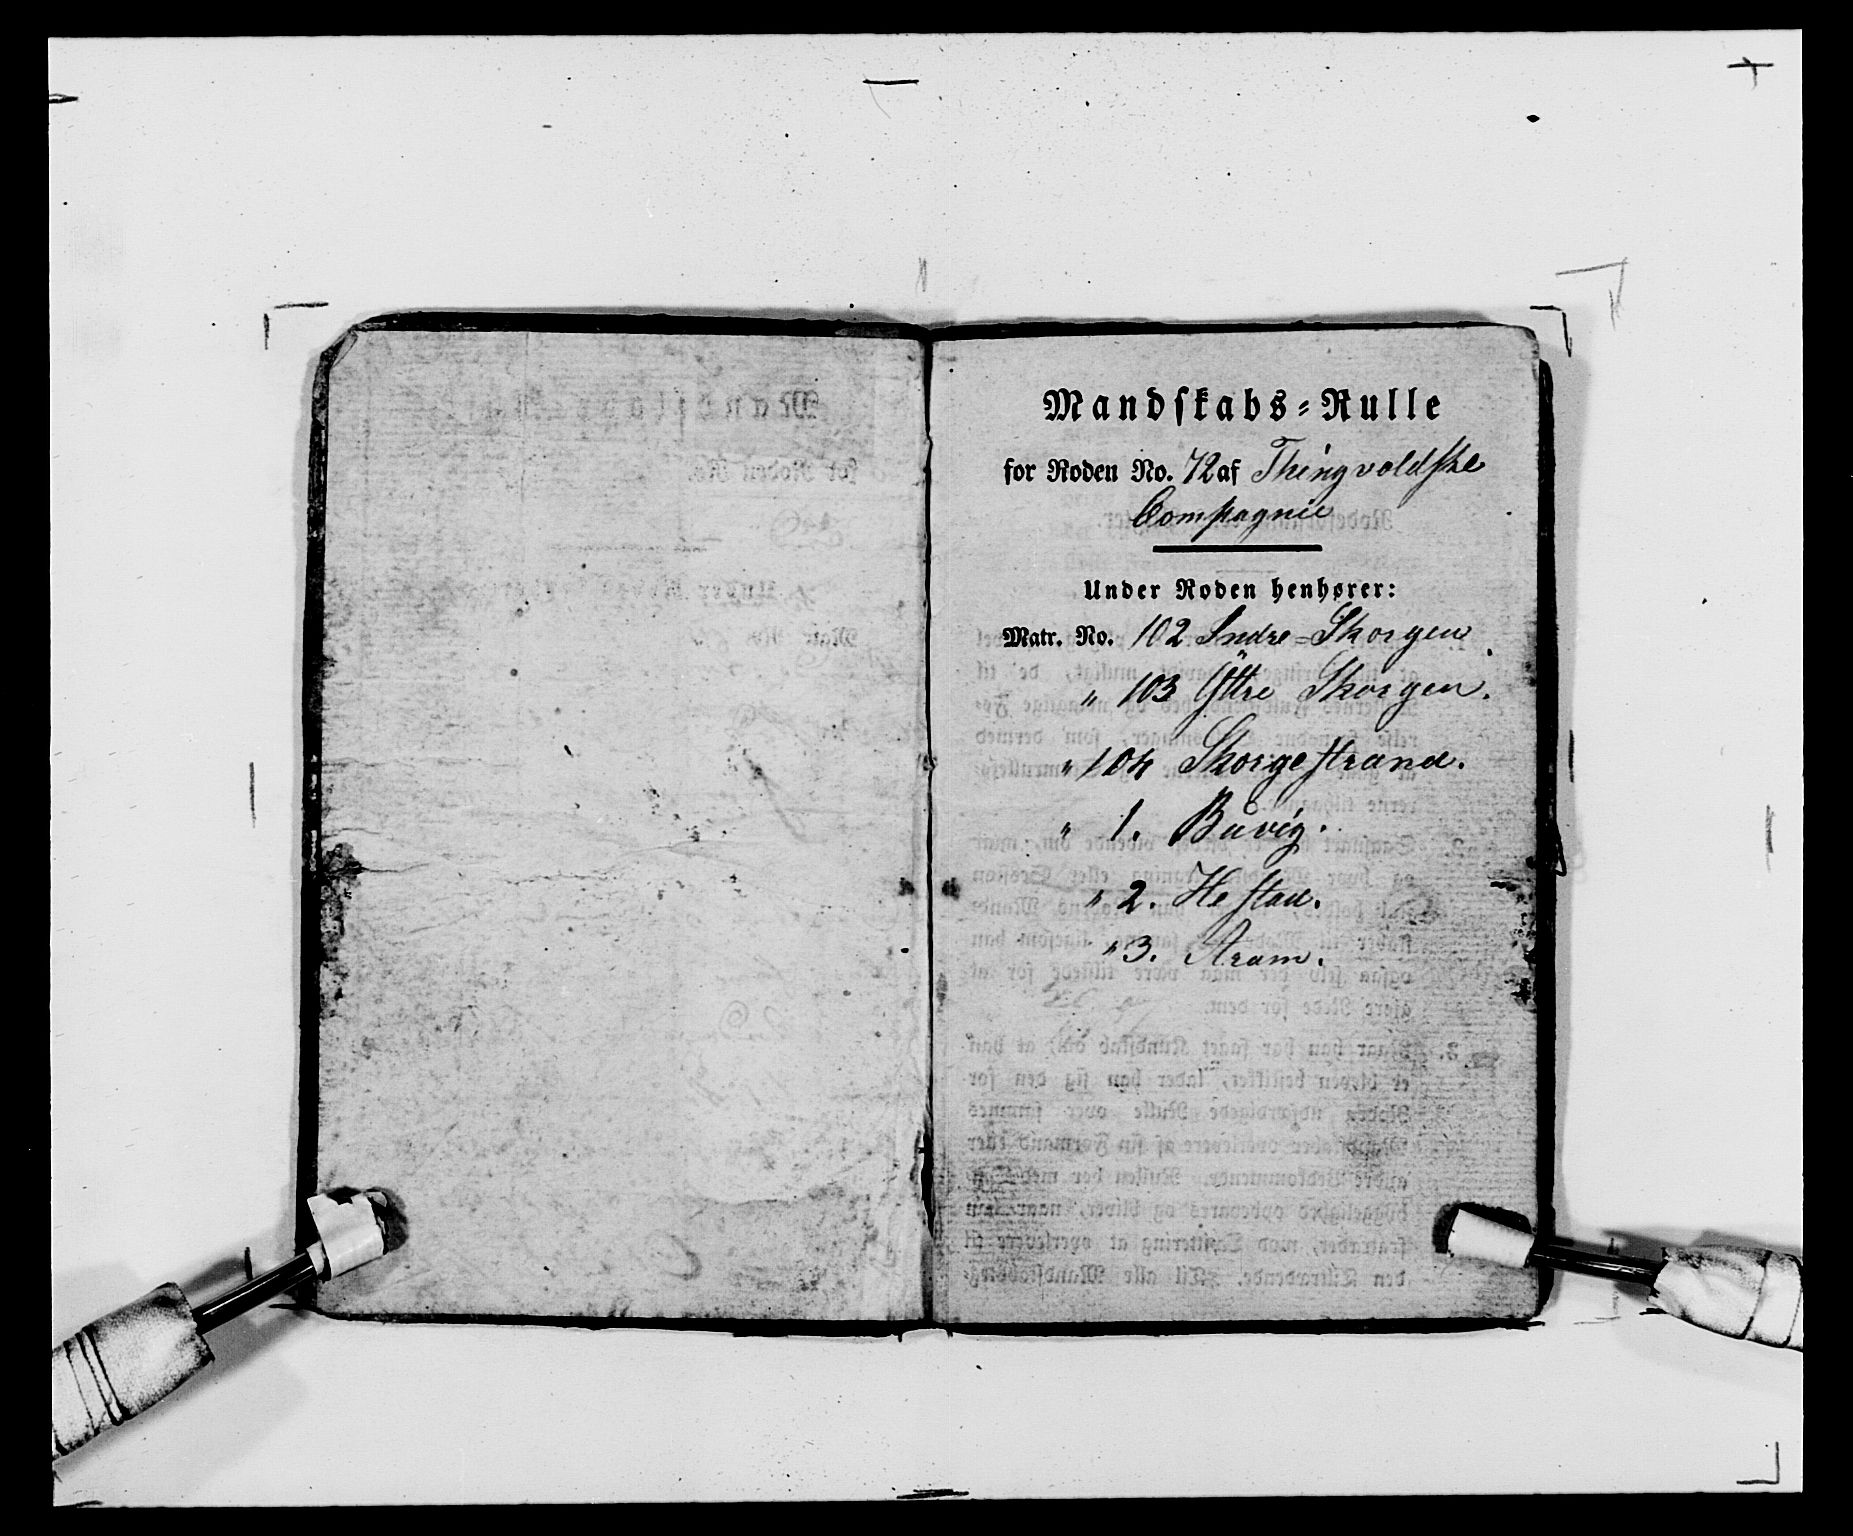 Mandskabs-Rulle
for Roden No. 72 af Thingvoldske
Compagnie
Under Roden henhører:
Matr. No. 102 Indre-Skorgen
" 103 Yttre Skorgen.
" 104 Skorgestrand.
" 1. Buvig.
" 2. Hestad.
" 3. Aram.